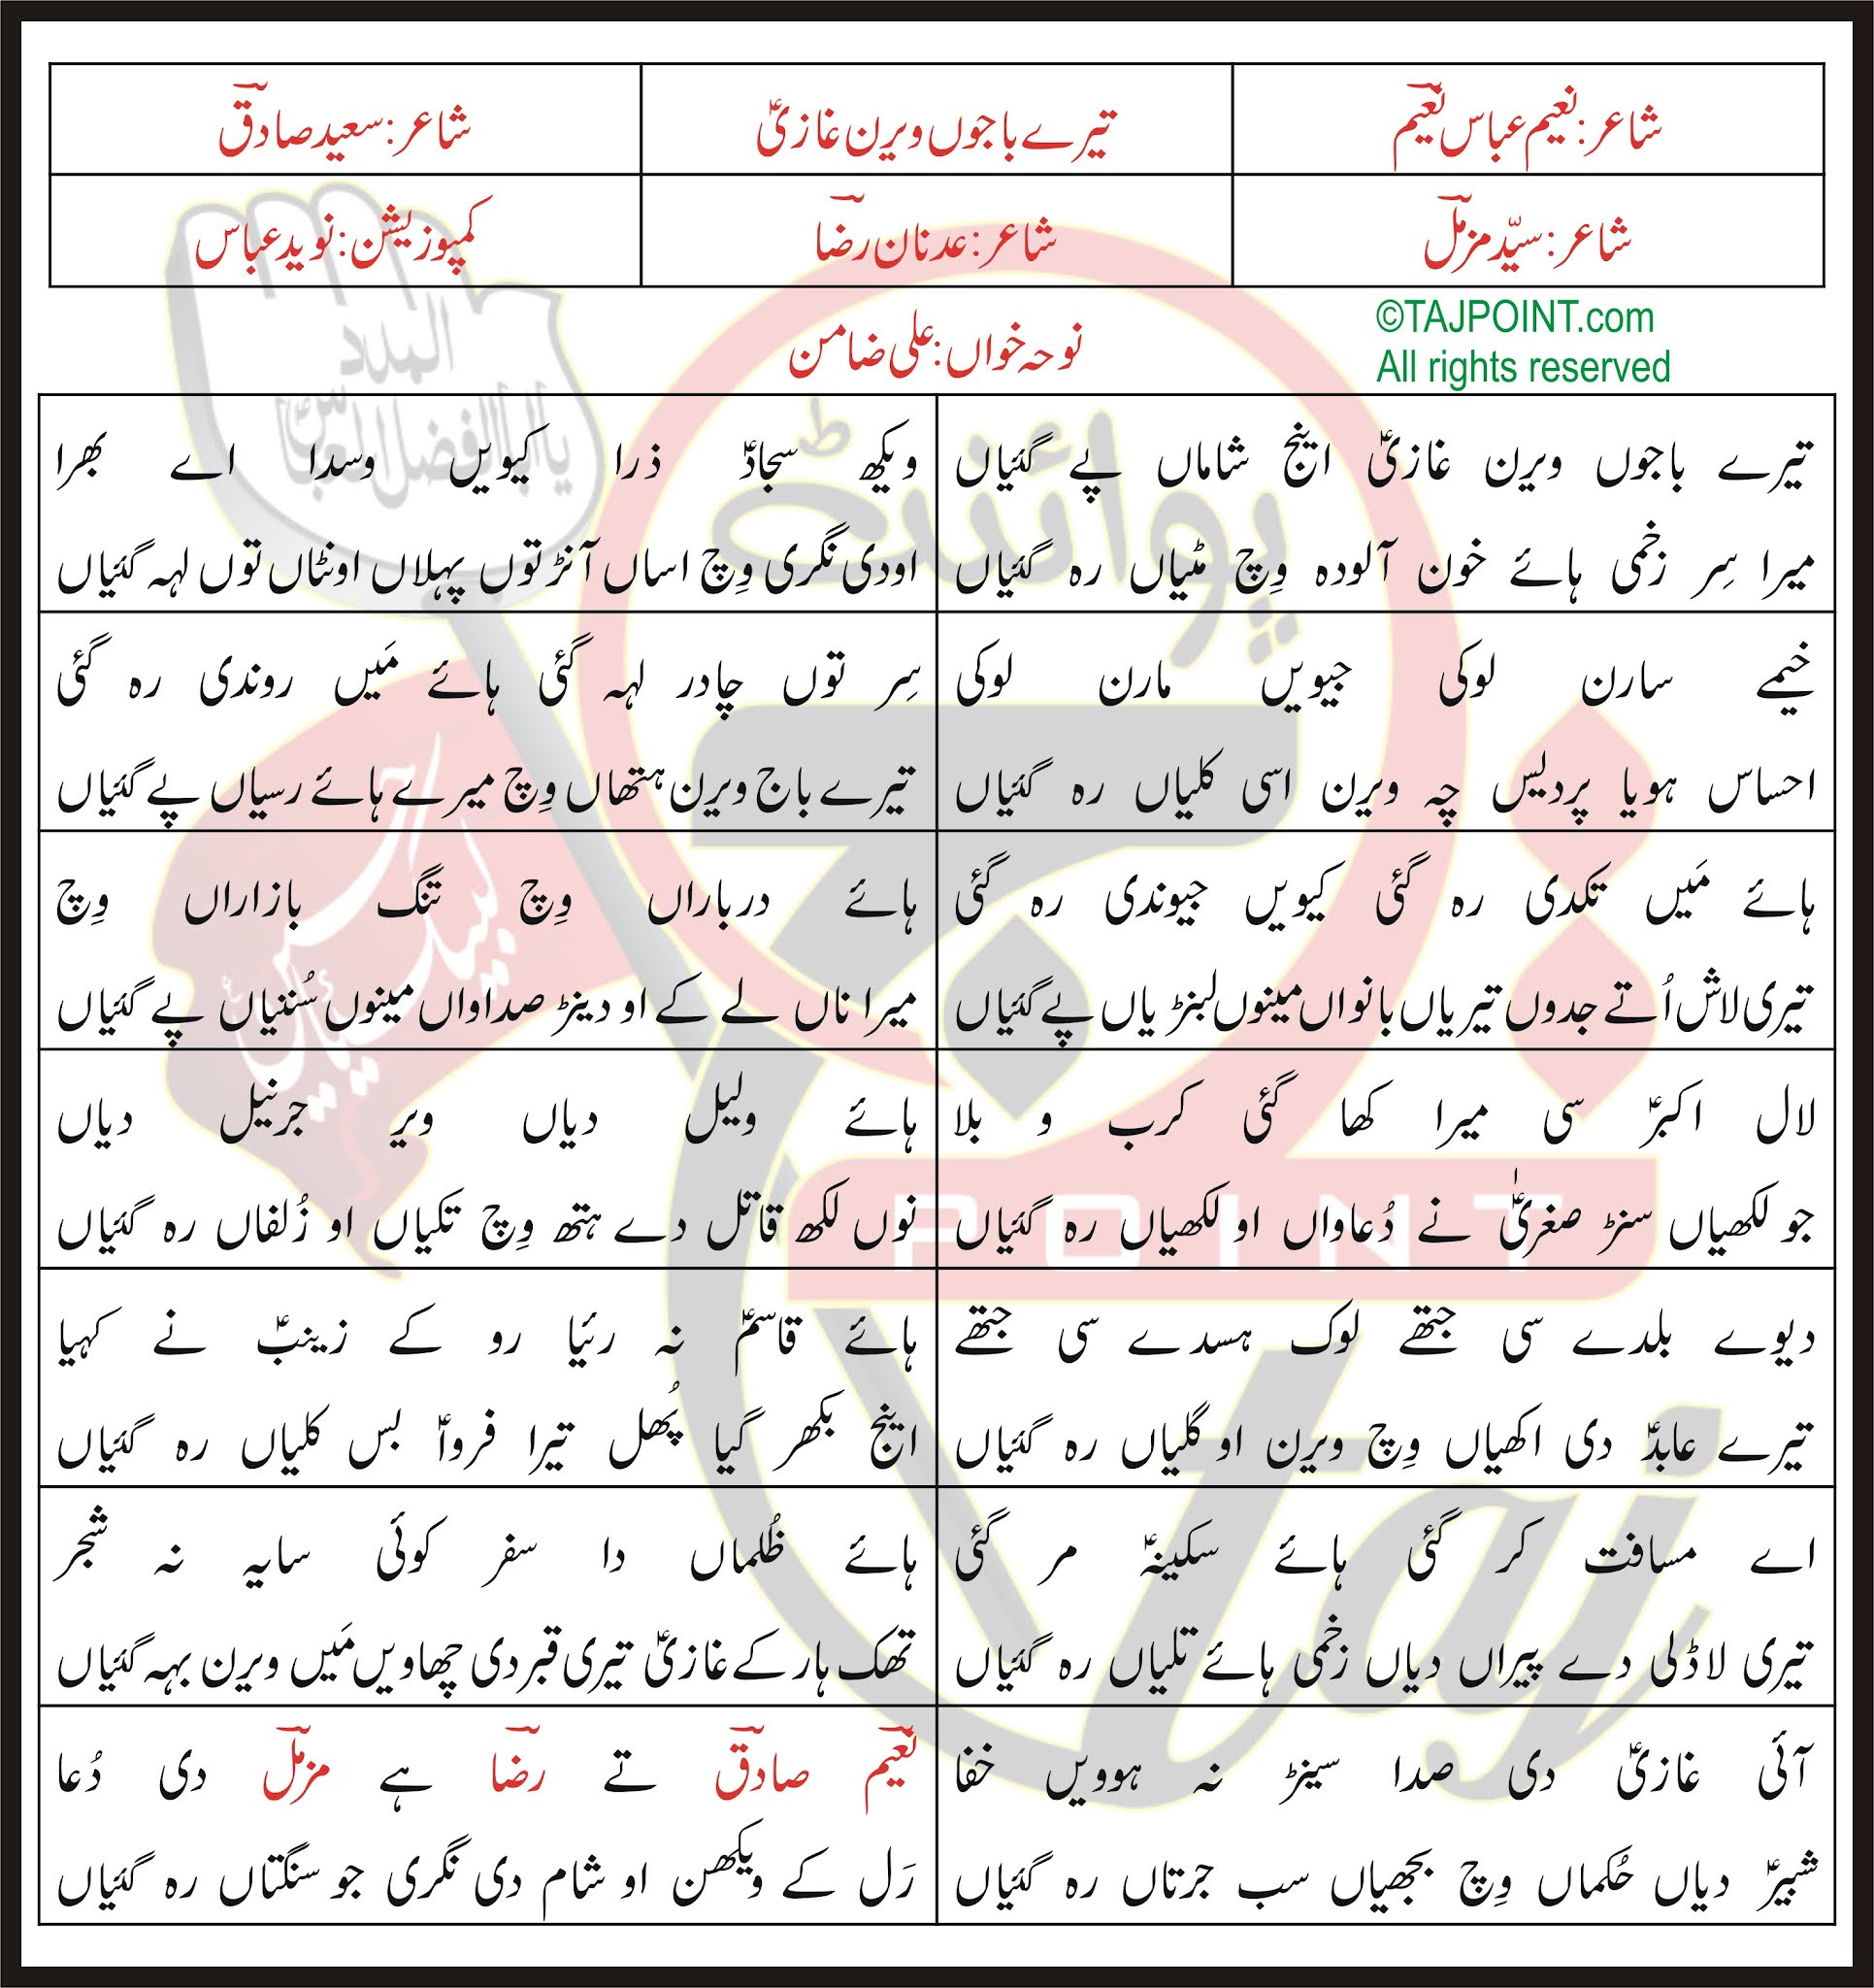 شاعر: نعیم عباس نعیمؔ
تیرے باجوں ویرن غازیؑ
شاعر: سعید صادقؔ
شاعر: سیّد مزملؔ
شاعر: عدنان رضاؔ
کمپوزیشن: نوید عباس
نوحہ خواں: علی ضامن
©TAJPOINT.com
All rights reserved
تیرے باجوں ویرن غازیؑ اینج شاماں پے گئیاں
میرا سِر زخمی ہائے خون آلودہ وِچ مٹیاں رہ گئیاں
ویکھ سجادؑ ذرا کیویں وسدا اے بھرا
اودی نگری وِچ اساں آنڑ توں پہلاں اونٹاں توں لہہ گئیاں
خیمے سارن لوکی جیویں مارن لوکی
احساس ہویا پردیس چہ ویرن اسی کلیاں رہ گئیاں
سِر توں چادر لہہ گئی ہائے مَیں روندی رہ گئی
تیرے باج ویرن ہتھاں وِچ میرے ہائے رسیاں پے گئیاں
ہائے مَیں تکدی رہ گئی کیویں جیوندی رہ گئی
تیری لاش اُتے جدوں تیریاں بانواں مینوں لبنڑیاں پے گئیاں
ہائے درباراں وِچ تنگ بازاراں وِچ
میرا ناں لے کے او دینڑ صداواں مینوں سُننیاں پے گئیاں
لال اکبرؑ سی میرا کھا گئی کرب و بلا
جو لکھیاں سنڑ صغریٰؑ نے دُعاواں او لکھیاں رہ گئیاں
ہائے ولیل دیاں ویر جرنیل دیاں
نوں لکھ قاتل دے ہتھ وِچ تکیاں او زُلفاں رہ گئیاں
دیوے بلدے سی جتھے لوک ہسدے سی جتھے
تیرے عابدؑ دی اکھیاں وِچ ویرن او گلیاں رہ گئیاں
ہائے قاسمؑ نہ رئیا رو کے زینبؑ نے کہیا
اینج بکھر گیا پُھل تیرا فرواؑ بس کلیاں رہ گئیاں
اے مسافت کر گئی ہائے سکینہؑ مر گئی
تیری لاڈلی دے پیراں دیاں زخمی ہائے تلیاں رہ گئیاں
ہائے ظُلماں دا سفر کوئی سایہ نہ شجر
تھک ہار کے غازیؑ تیری قبر دی چھاویں مَیں ویرن بہہ گئیاں
آئی غازیؑ دی صدا سینڑ نہ ہوویں خفا
شبیرؑ دیاں حُکماں وِچ بجھیاں سب جرتاں رہ گئیاں
نعیمؔ صادقؔ تے رضاؔ ہے مزملؔ دی دُعا
رَل کے ویکھن او شام دی نگری جو سنگتاں رہ گئیاں
پوائنٹ
POINT
taj
المدد
یا ابالفضل العباسؑ